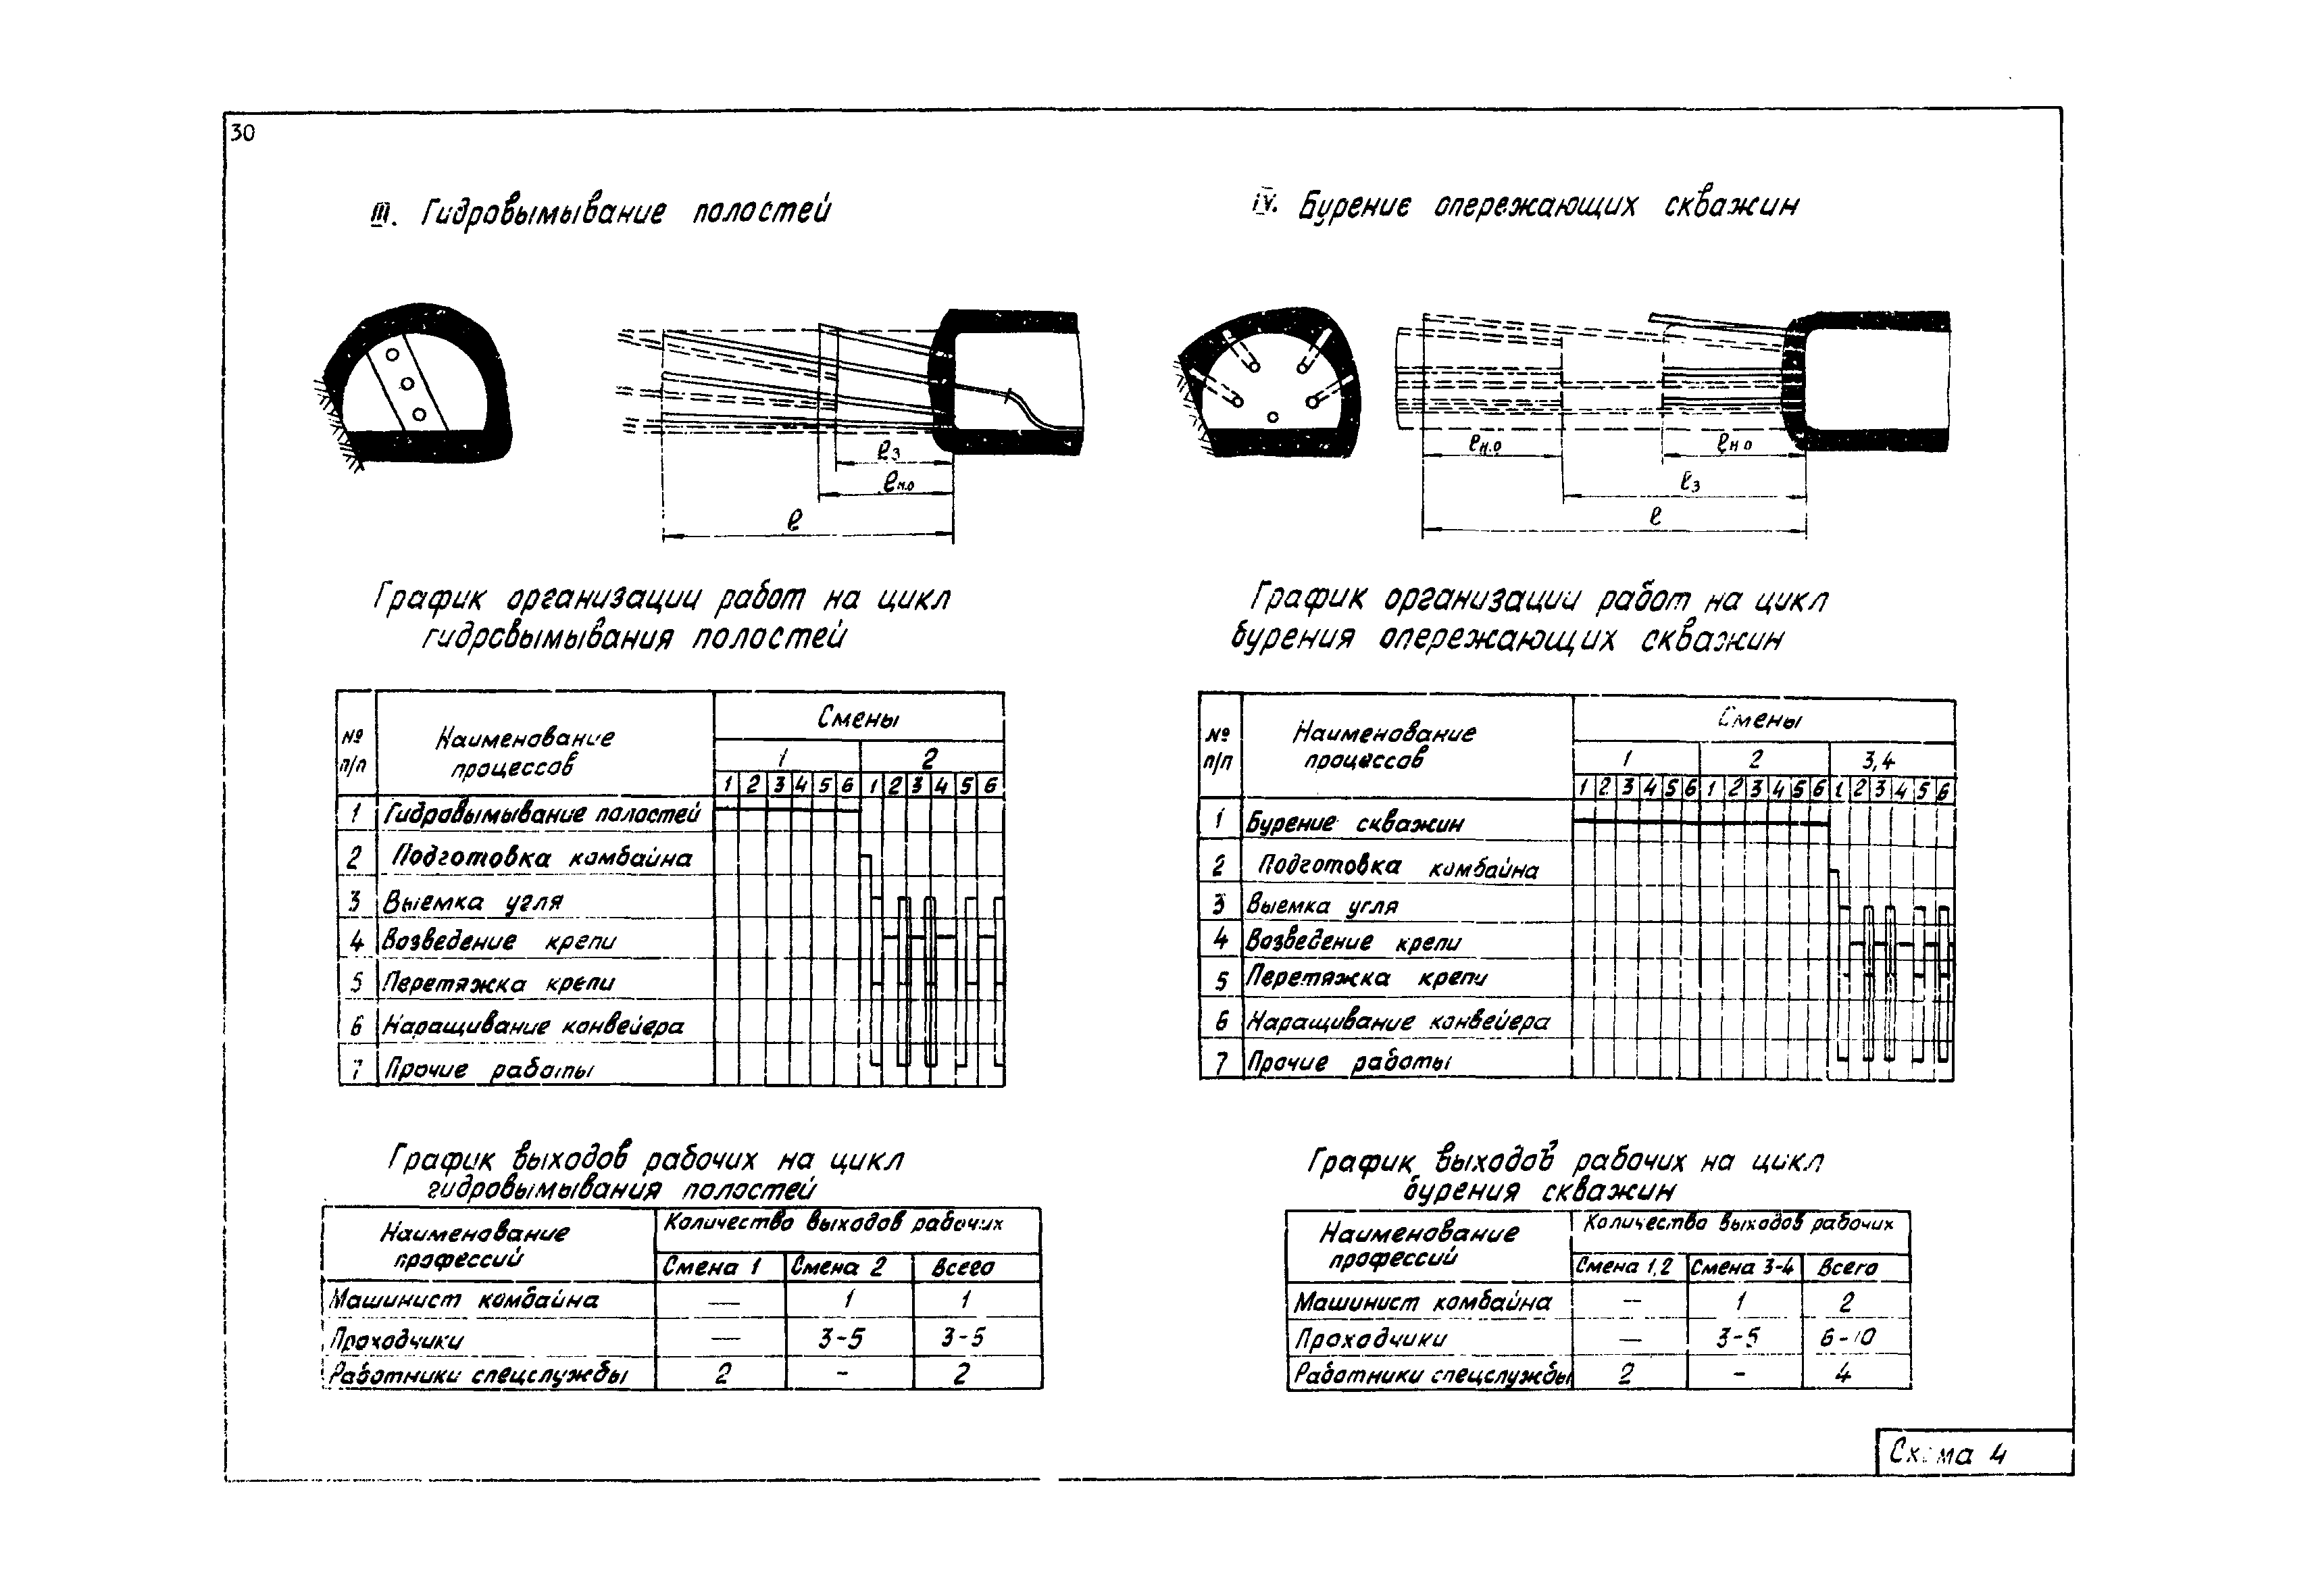 30
III. Гидровымывание полостей
ℓз
ℓн.о
ℓ
График организации работ на цикл
гидровымывания полостей
№ п/п Наименование процессов Смены
1 2
1 2 3 4 5 6 1 2 3 4 5 6
1 Гидровымывание полостей
2 Подготовка комбайна
3 Выемка угля
4 Возведение крепи
5 Перетяжка крепи
6 Наращивание конвейера
7 Прочие работы
График выходов рабочих на цикл
гидровымывания полостей
Наименование профессий Количество выходов рабочих
Смена 1 Смена 2 Всего
Машинист комбайна — 1 1
Проходчики — 3-5 3-5
Работники спецслужбы 2 - 2
IV. Бурение опережающих скважин
ℓн.о ℓн.о
ℓз
ℓ
График организации работ на цикл
бурения опережающих скважин
№ п/п Наименование процессов Смены
1 2 3,4
1 2 3 4 5 6 1 2 3 4 5 6 1 2 3 4 5 6
1 Бурение скважин
2 Подготовка комбайна
3 Выемка угля
4 Возведение крепи
5 Перетяжка крепи
6 Наращивание конвейера
7 Прочие работы
График выходов рабочих на цикл
бурения скважин
Наименование профессий Количество выходов рабочих
Смена 1,2 Смена 3-4 Всего
Машинист комбайна — 1 2
Проходчики — 3-5 6-10
Работники спецслужбы 2 - 4
Схема 4